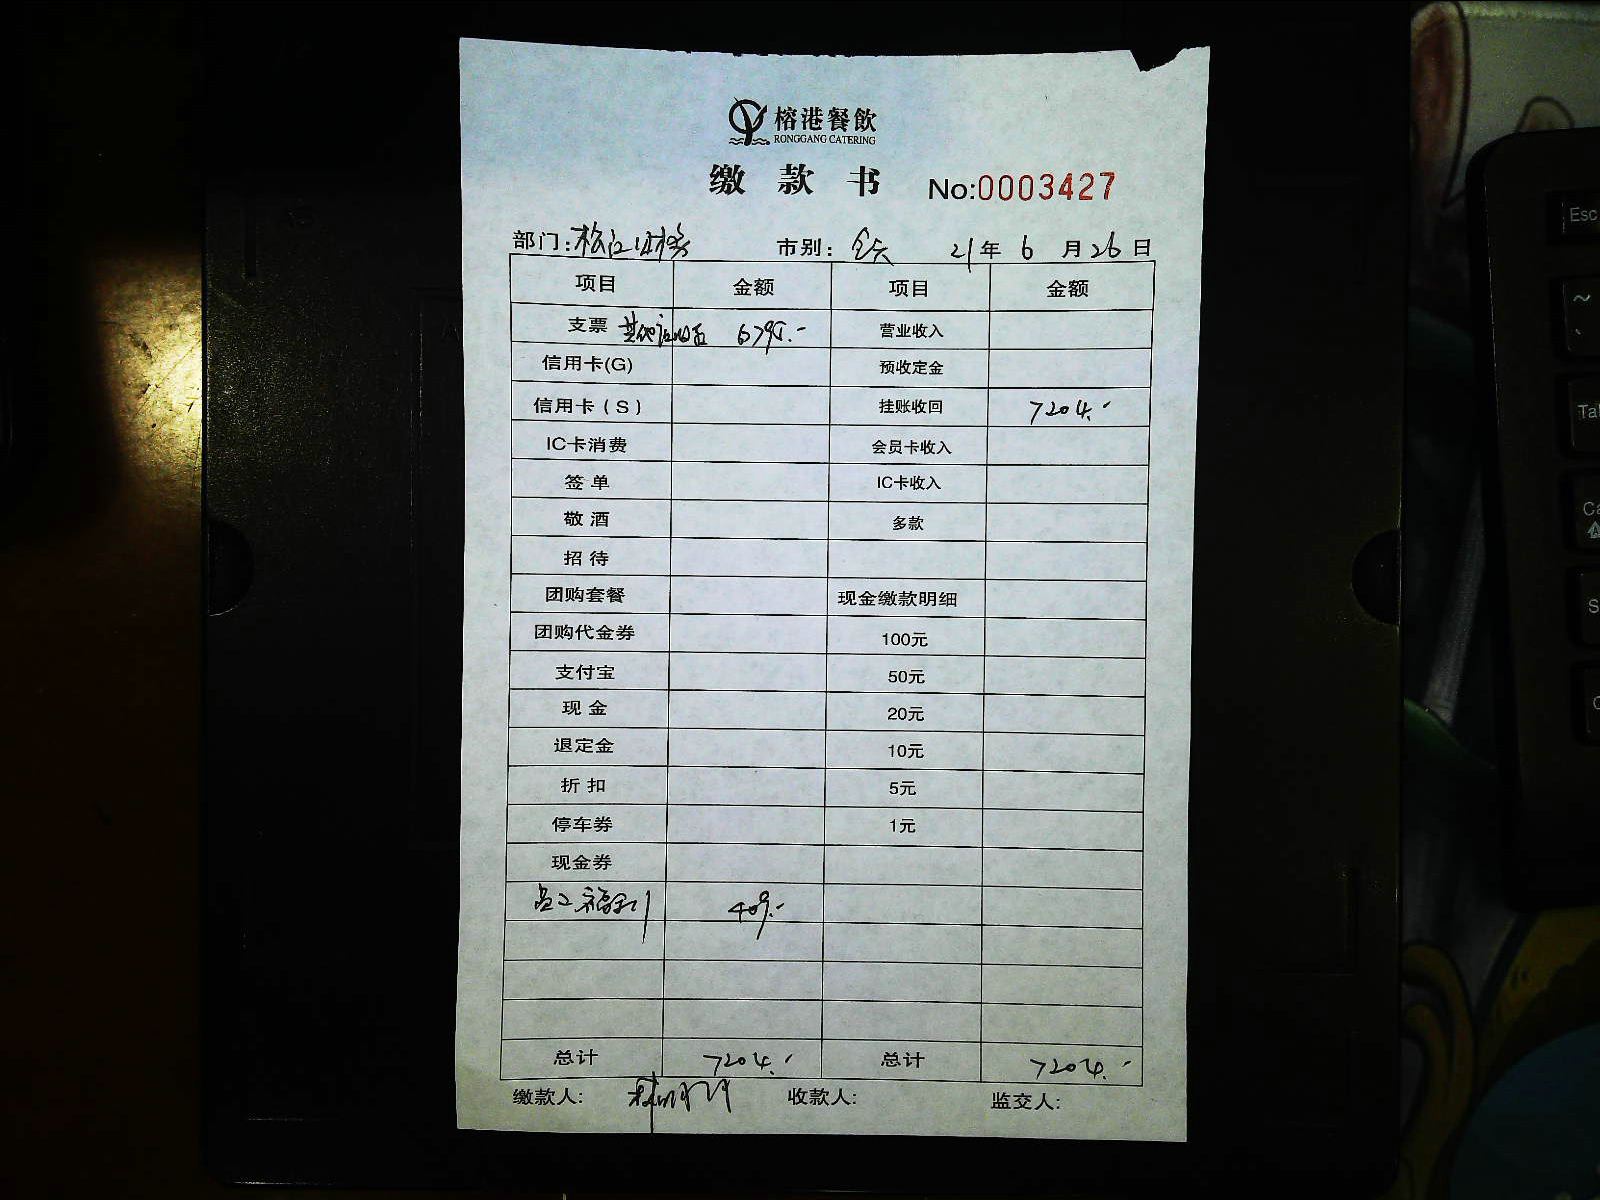 榕港餐飲
RONGGANG CATERING
缴款书 No:0003427
部门: 市别: 全天 21年 6月26日
项目 金额 项目 金额
支票 6795.- 营业收入
信用卡(G) 预收定金
信用卡(S) 挂账收回 7204.-
IC卡消费 会员卡收入
签单 IC卡收入
敬酒 多款
招待
团购套餐 现金缴款明细
团购代金券 100元
支付宝 50元
现金 20元
退定金 10元
折扣 5元
停车券 1元
现金券
员工福利 409.-
总计 7204.- 总计 7204.-
缴款人: 收款人: 监交人:
Esc
~
Tab